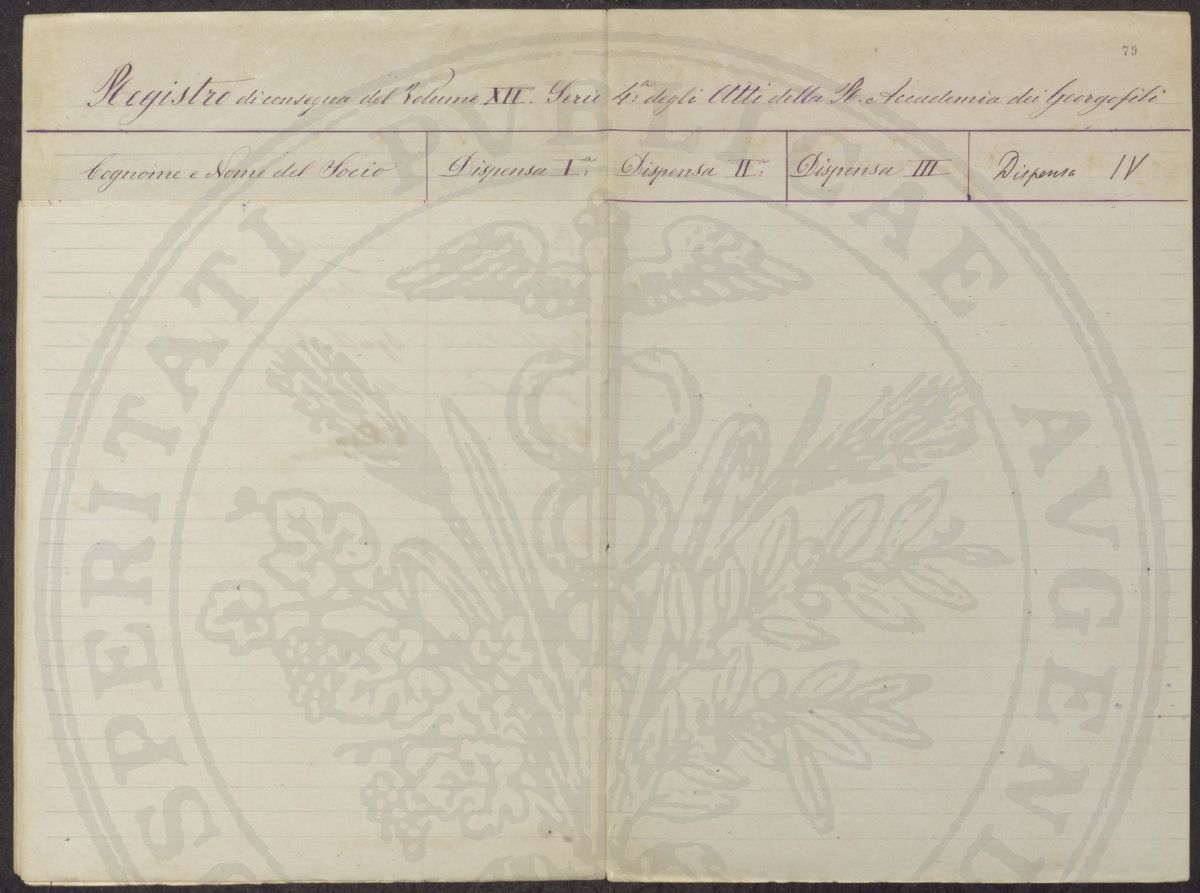 79
Registro di consegna del Volume XII. Serie 4.ª degli Atti della R. Accademia dei Georgofili
Cognome e Nome del Socio Dispensa I.ª Dispensa II.ª Dispensa III Dispensa IV
SPERITATI PUBLICAE AVGEND